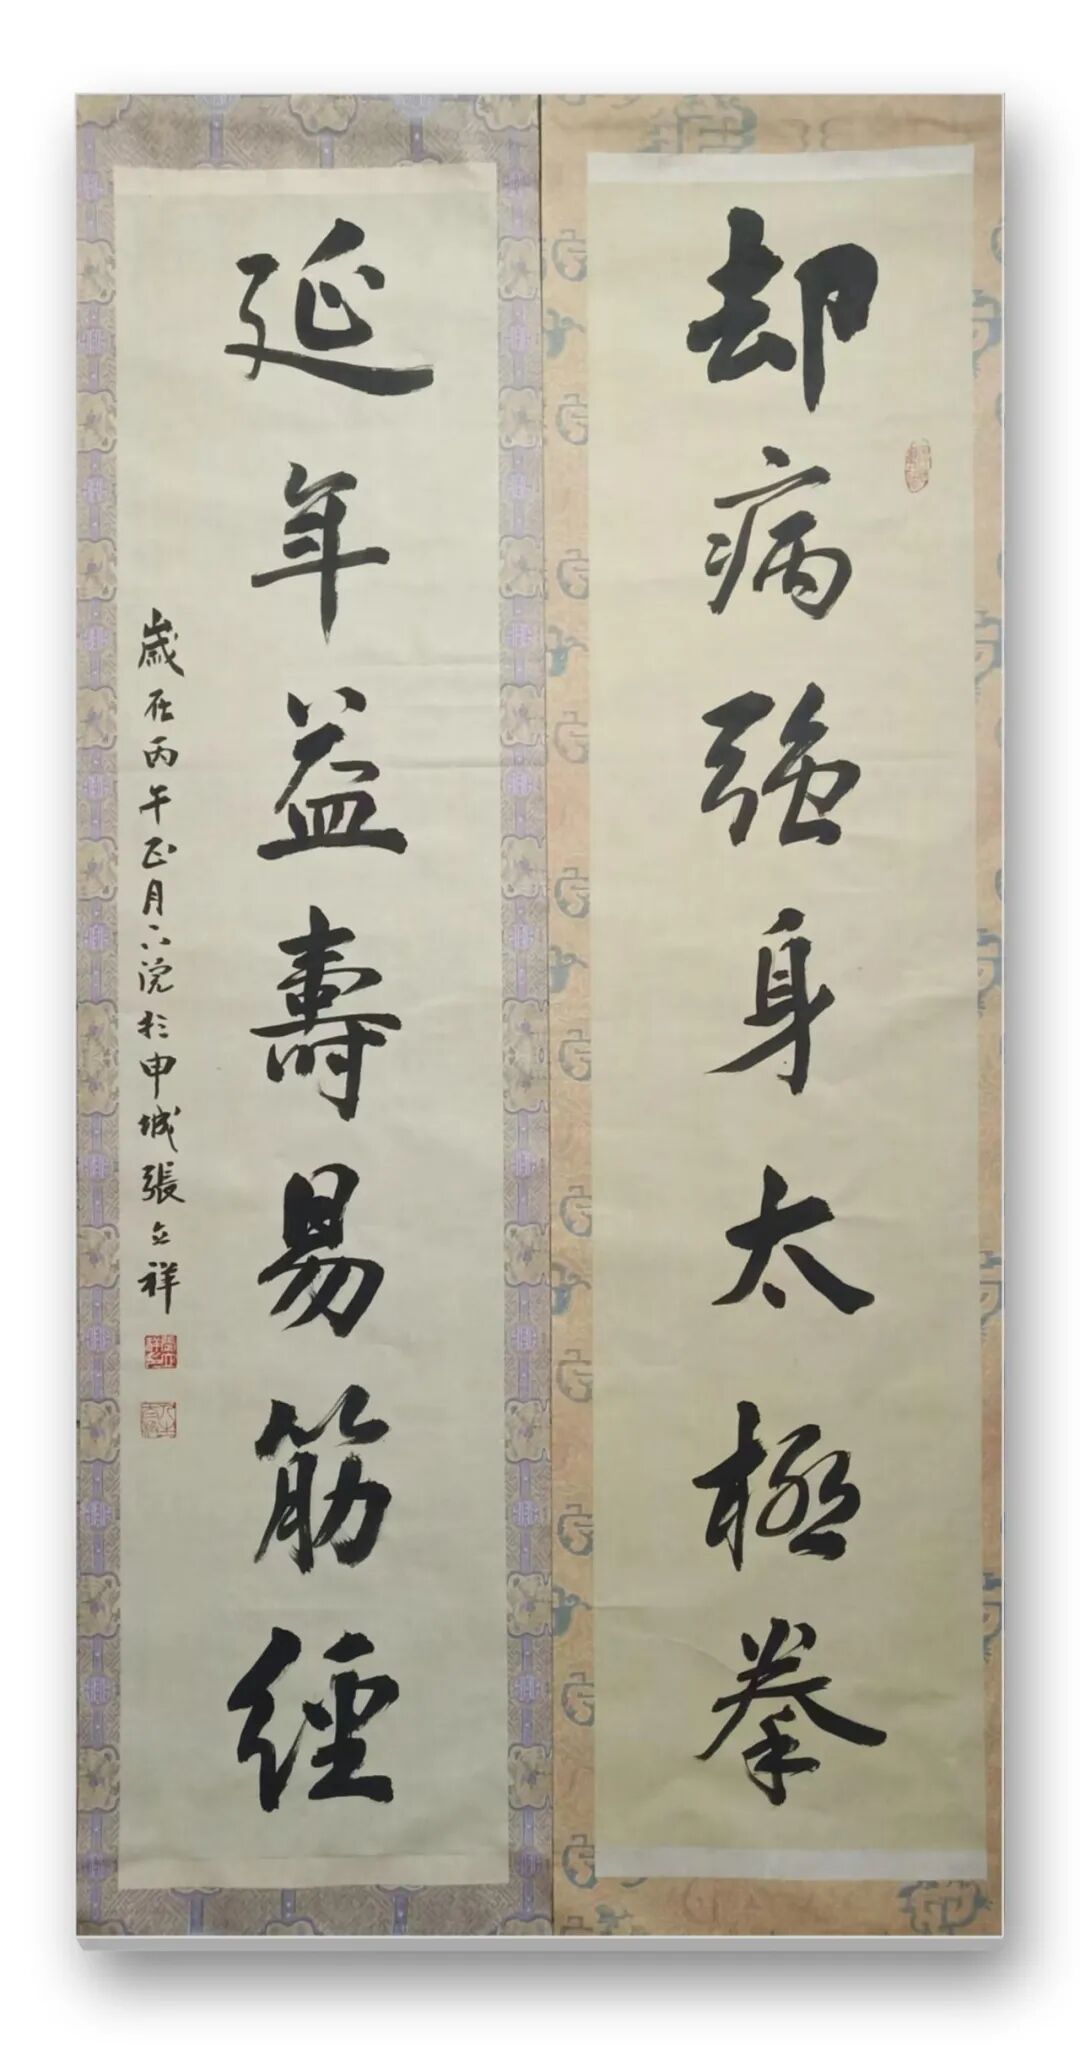 却病強身太極拳
延年益壽易筋經
歲在丙午正月下浣於申城張立祥